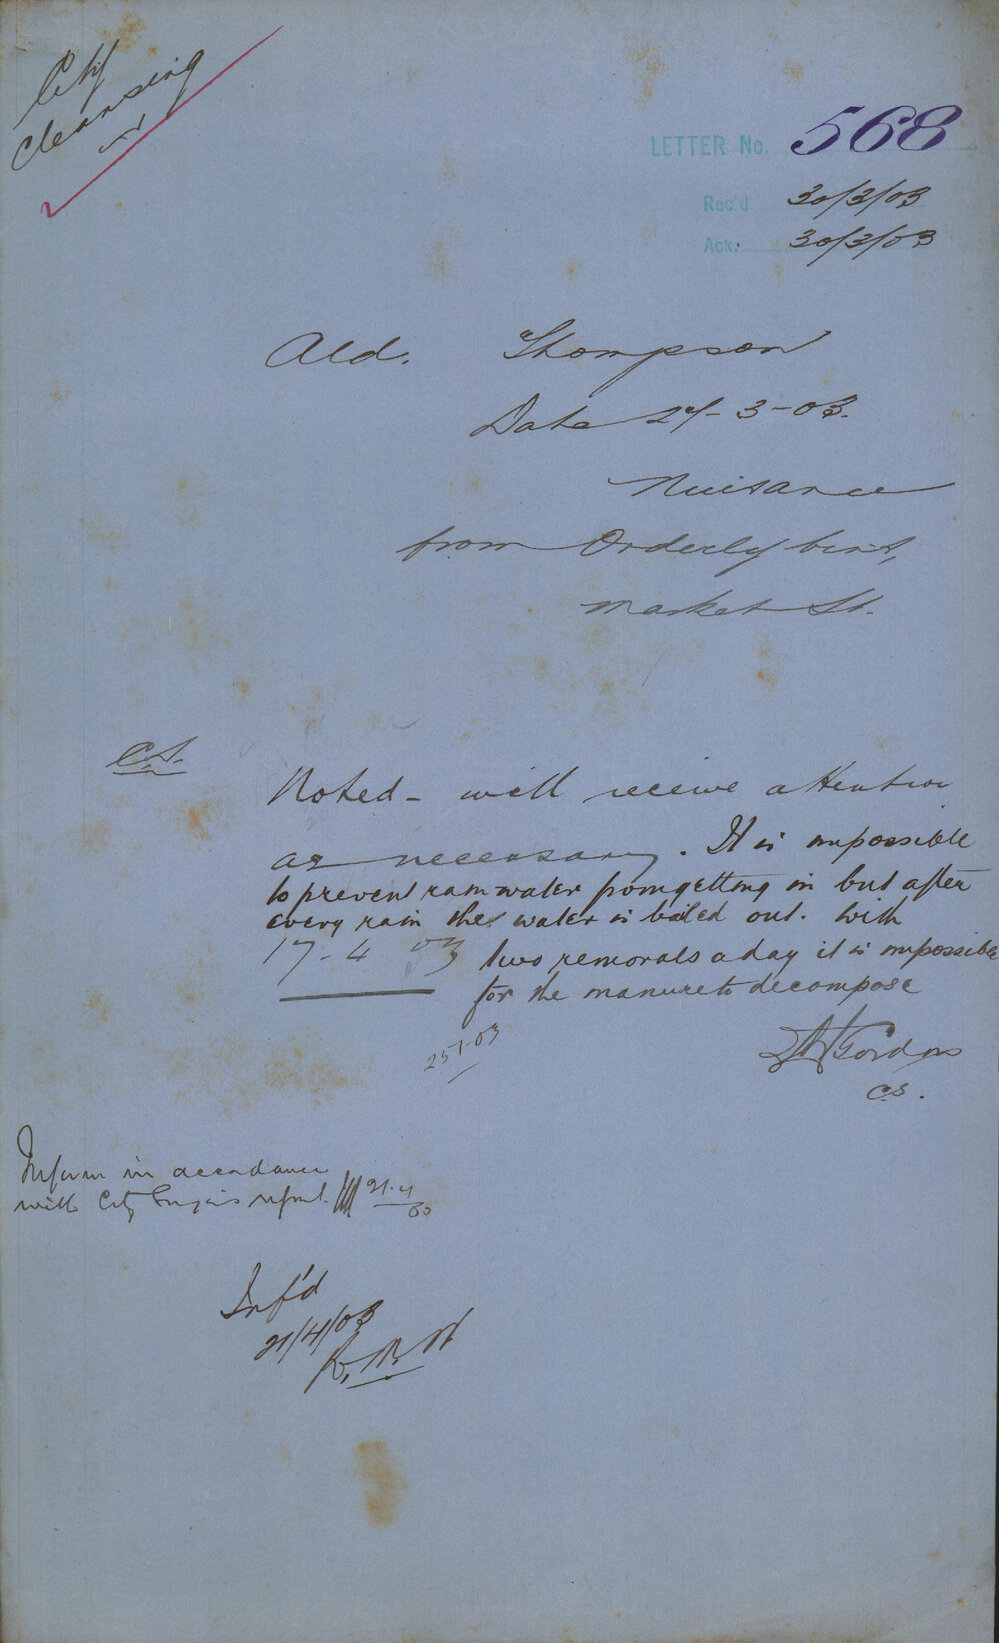 City
Cleansing
LETTER No. 568
Rec'd 30/3/03
Ack. 30/3/03
Ald. Thompson
Date 27-3-03.
Nuisance
from Orderly bins,
Market St.
C.S.
Noted - will receive attention
as necessary. It is impossible
to prevent rain water from getting in but after
every rain the water is bailed out. With
17-4 03 two removals a day it is impossible
for the manure to decompose
Gordon
C.S.
Inform in accordance
with City report. 21.4
03
Inf'd
21/4/03